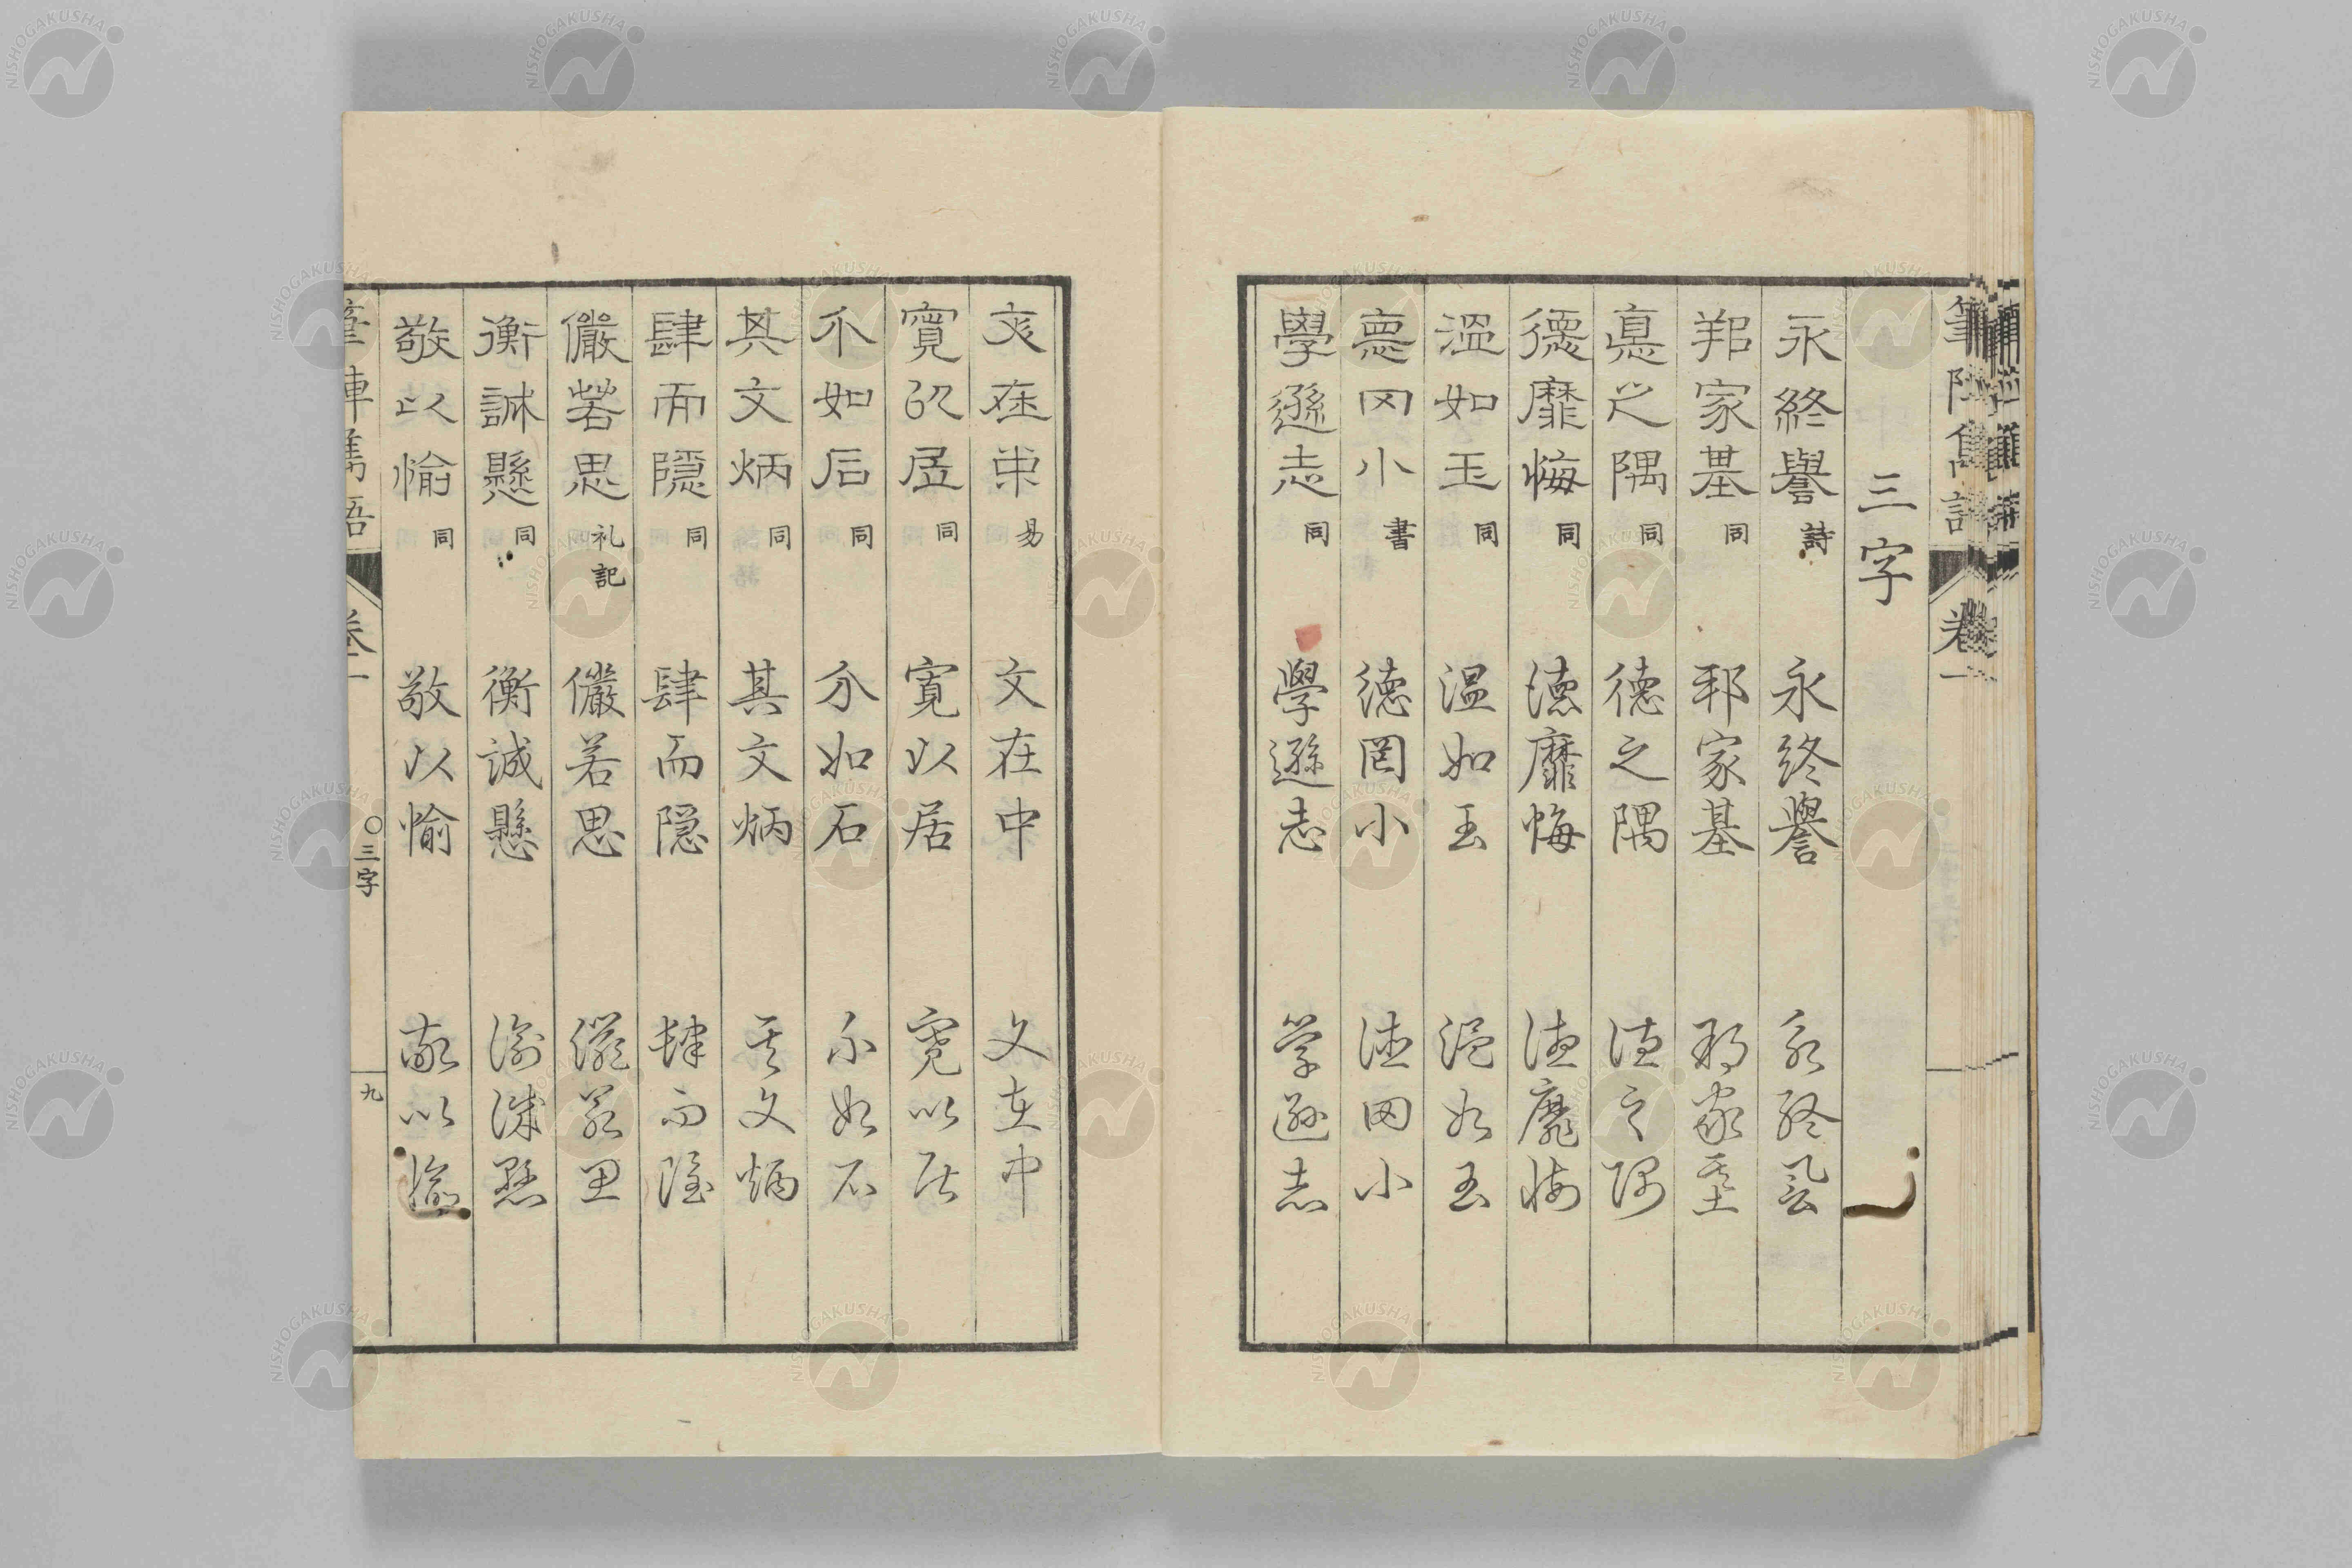 筆陣雋語
卷一
三字
永終譽 詩 永終譽 永終譽
邦家基 同 邦家基 邦家基
德之隅 同 德之隅 德之隅
德靡悔 同 德靡悔 德靡悔
溫如玉 同 溫如玉 溫如玉
德罔小 書 德罔小 德罔小
學遜志 同 學遜志 學遜志
文在中 易 文在中 文在中
寬以居 同 寬以居 寬以居
介如石 同 介如石 介如石
其文炳 同 其文炳 其文炳
肆而隱 同 肆而隱 肆而隱
儼若思 礼記 儼若思 儼若思
衡誠懸 同 衡誠懸 衡誠懸
敬以愉 同 敬以愉 敬以愉
筆陣雋語
卷一
○三字
九
NISHOGAKUSHA